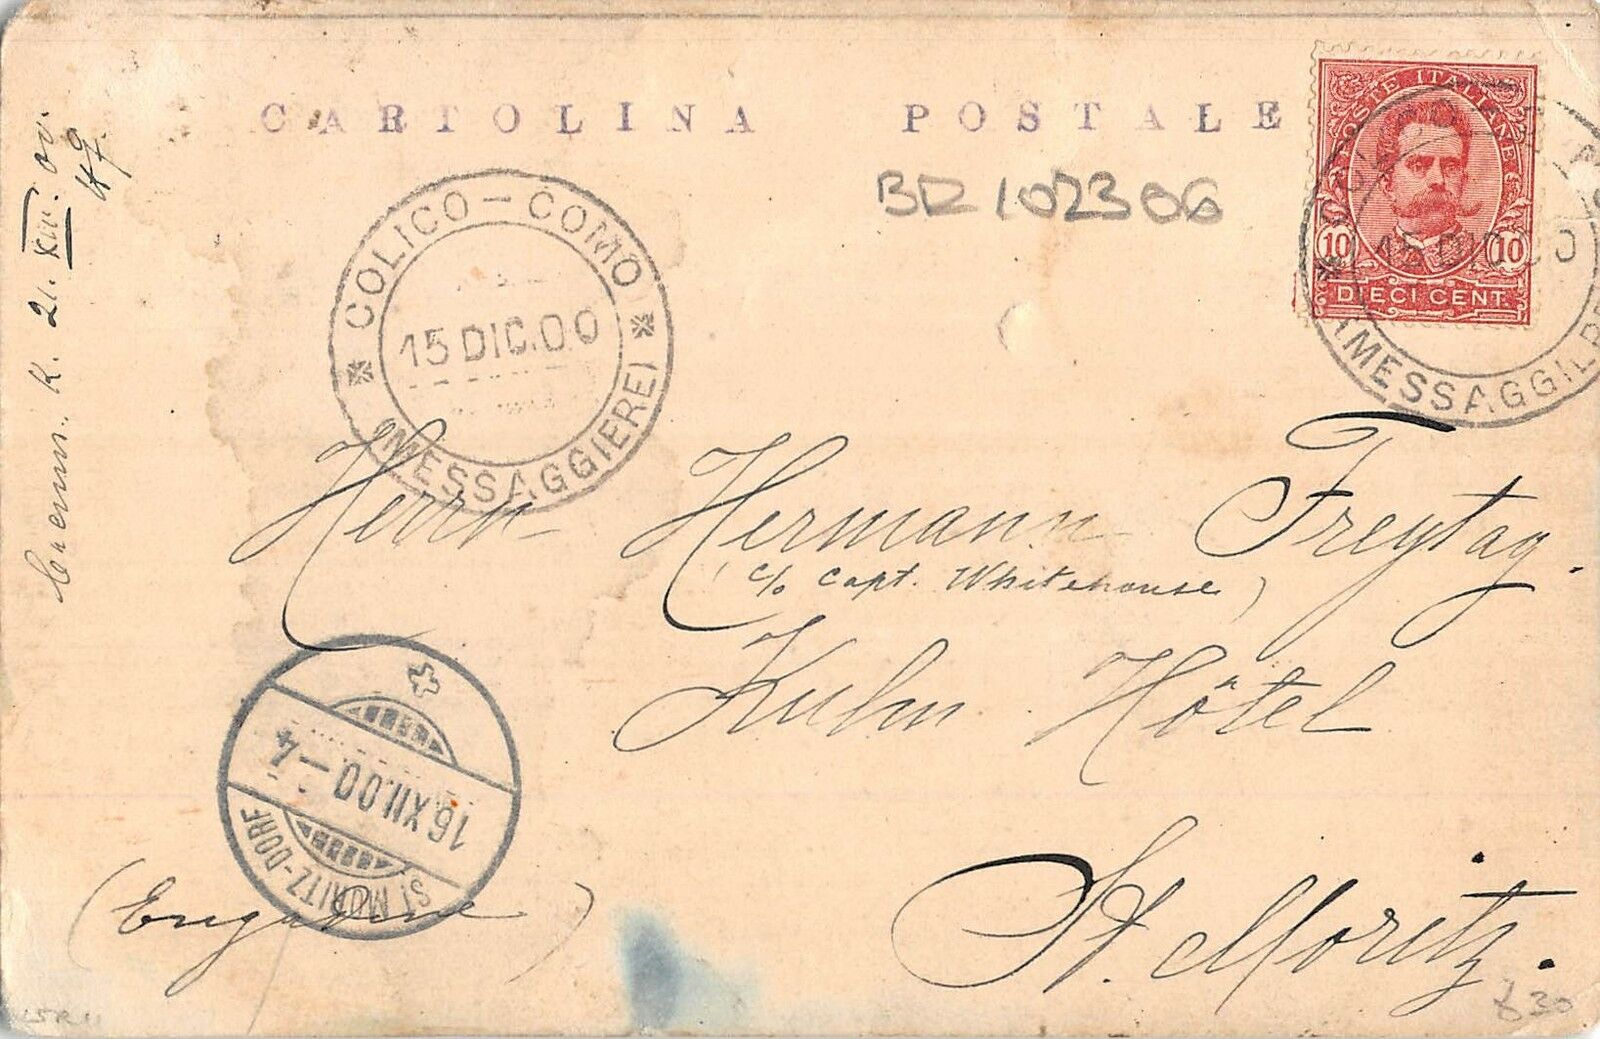 CARTOLINA POSTALE
POSTE ITALIANE
10 10
DIECI CENT.
15 DIC 00
(MESSAGGIERE
BR 102306
COLICO - COMO
15 DIC.00
(MESSAGGIERE)
K. 21. XII. 00.
Herrn Hermann Freytag.
(c/o Capt. Whitehouse)
Kuhn Hôtel
St. Moritz.
(Engadine)
16.XII.00 - 4
ST MORITZ-DORF
£30